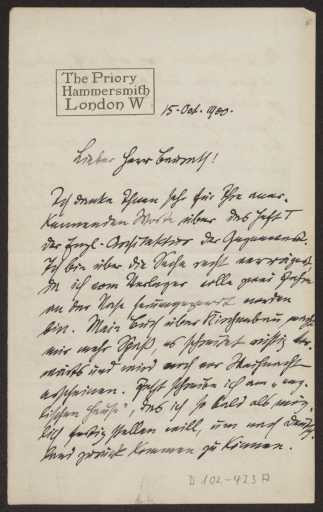 The Priory
Hammersmith
London W
15. Oct. 1900.
Lieber Herr
Ich danke Ihnen sehr für Ihre aner-
kennenden Worte über das Heft I
der Engl. Architektur der Gegenwart.
Ich bin über die Sache recht
da ich vom Verleger volle zwei Jahre
an der Nase herumgezerrt worden
bin. Mein Buch über Kirchenbau macht
mir mehr Spaß es schreitet rüstig vor-
wärts und wird noch vor Weihnacht
erscheinen. Jetzt schreibe ich am „eng-
lischen Hause", das ich so bald als mög-
lich fertig stellen will, um nach Deutsch-
land zurück kommen zu können.
D 102-423 A